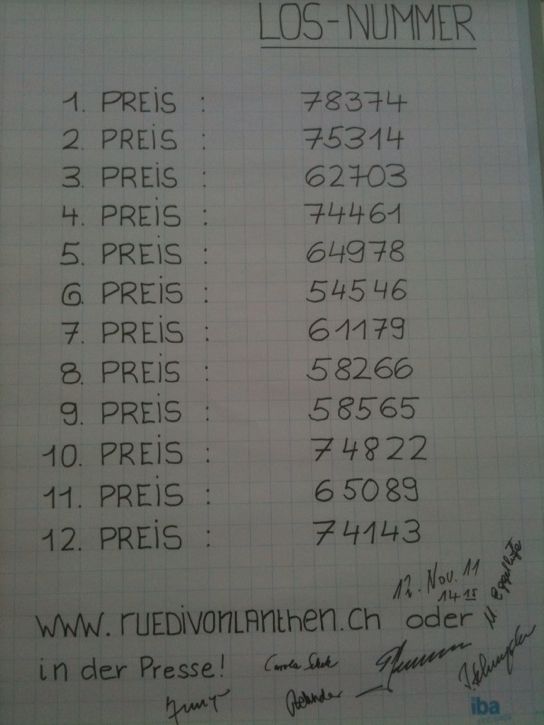 LOS-NUMMER
1. PREIS : 78374
2. PREIS : 75314
3. PREIS : 62703
4. PREIS : 74461
5. PREIS : 64978
6. PREIS : 54546
7. PREIS : 61179
8. PREIS : 58266
9. PREIS : 58565
10. PREIS : 74822
11. PREIS : 65089
12. PREIS : 74143
Nov. 11
www.RUEDIVONLANTHEN.ch oder
in der Presse!
iba